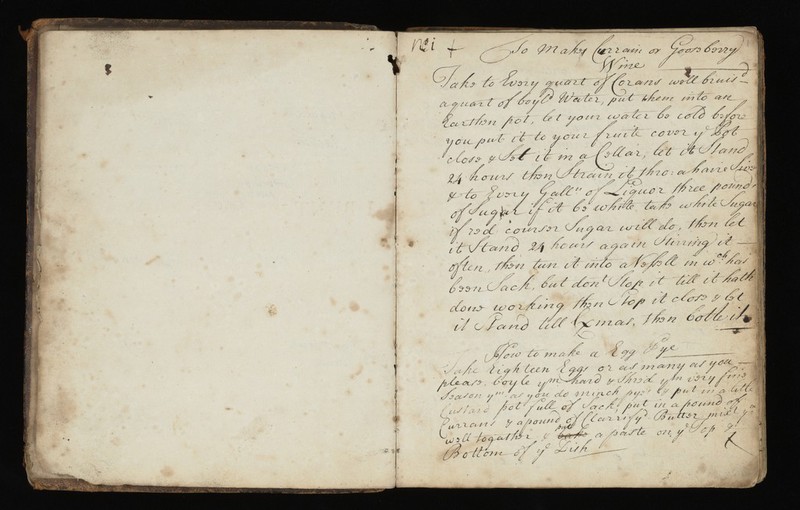 No 1 To Make Currain or Goosberry
Wine
Take to Every quart of Corans well bruis'd
a quart of boyl'd Water, put them into an
Earthen pot, let your water be cold before
you put it to your fruite cover ye Pot
close & Set it in a Cellar, let it Stand
24 hours then Strain it thro: a haire Sive
& to Every Galln of Liquor three pounds
of Sugar if it be white take white Sugar
if red courser Sugar will do, then let
it Stand 24 hours again Stirring it
often, then tun it into a Vessell in wch has
been Sack, but dont Stop it till it hath
done working then Stop it close & let
it Stand till Xmas, then bottle it
How to make a Egg Pye
Take Eighteen Eggs or as many as you
please, boyle ym hard & Shred ym very fine
Season ym as you do minch pye & put in a little
Custard pot full of Sack, put in a pound of
Currans & a pound of Clarrify'd Butter mixt ym
well togather & a paste on ye Top &
Bottom of ye Dish